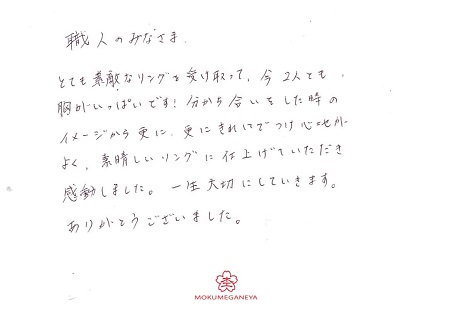 職人のみなさま
とても素敵なリングを受け取って、今2人とも、
胸がいっぱいです!分かち合いをした時の
イメージから更に、更にきれいでつけ心地が
よく、素晴しいリングに仕上げていただき
感動しました。一生大切にしていきます。
ありがとうございました。
MOKUMEGANEYA